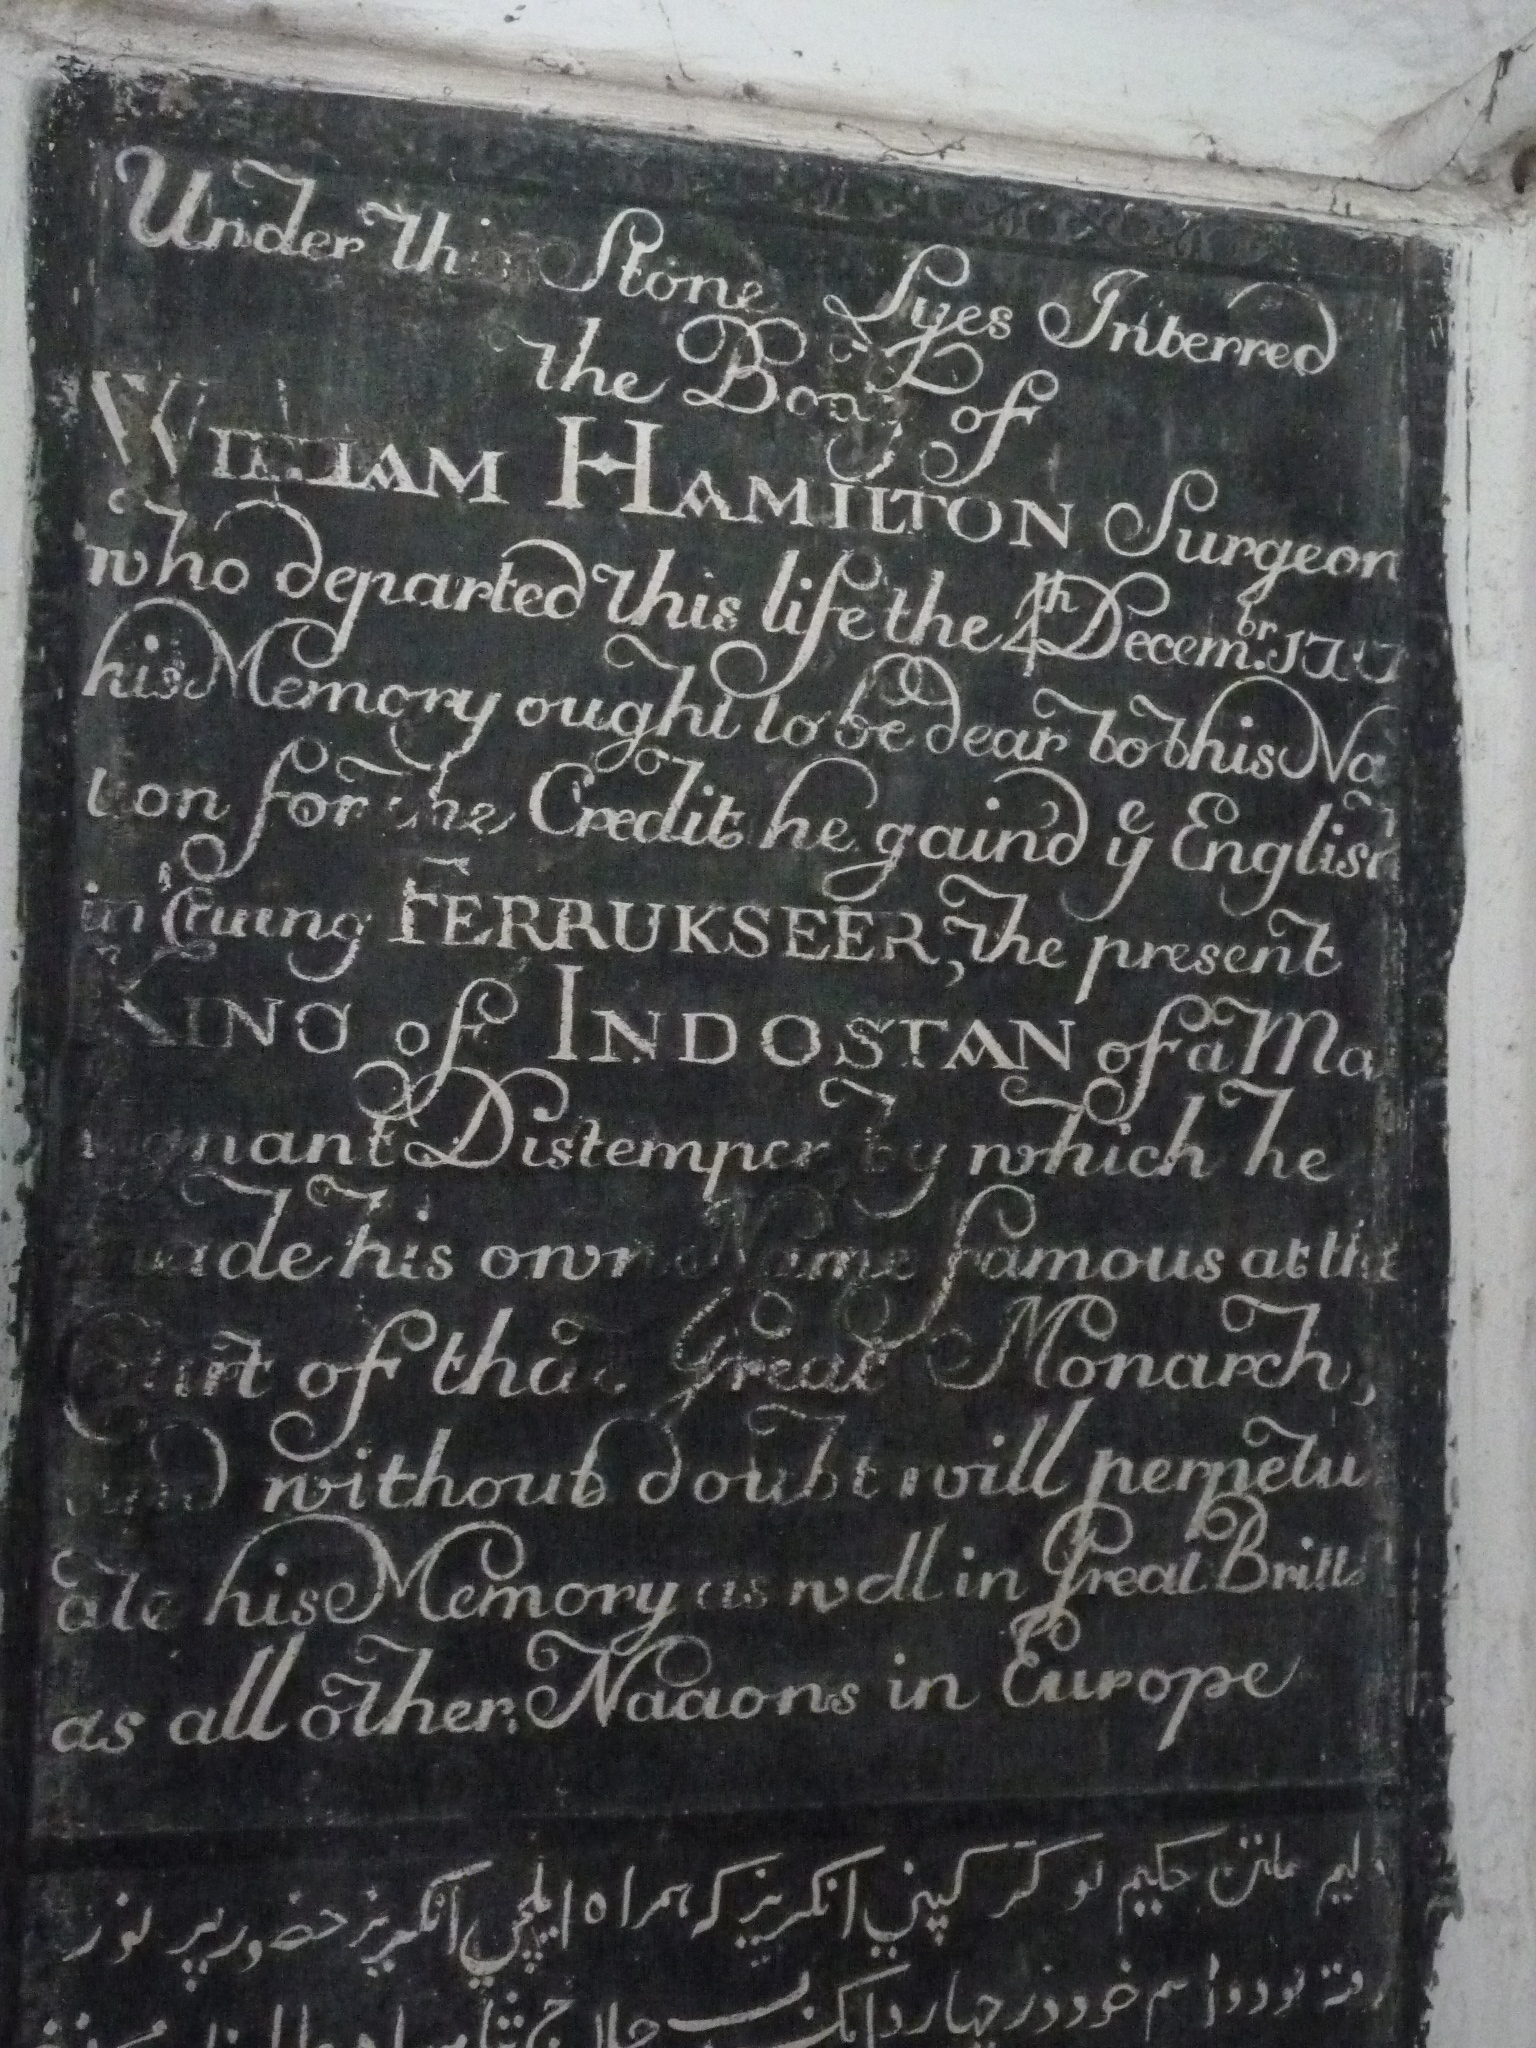 Under this Stone Lyes Interred
the Body of
WILLIAM HAMILTON Surgeon
who departed this life the 4th Decembr. 1717
his Memory ought to be dear to this Na
tion for the Credit he gaind ye English
in Curing FERRUKSEER, the present
KING of INDOSTAN of a Ma
lignant Distemper by which he
made his own Name famous at the
Court of that Great Monarch,
and without doubt will perpetu
ate his Memory as well in Great Britt
as all other Nations in Europe
ولیم ملتن حکیم نوکر کمپنی انگریز که همراه ایلچی انگریز حضور پر نور
رفته بود و اسم خود در چهار دانگ